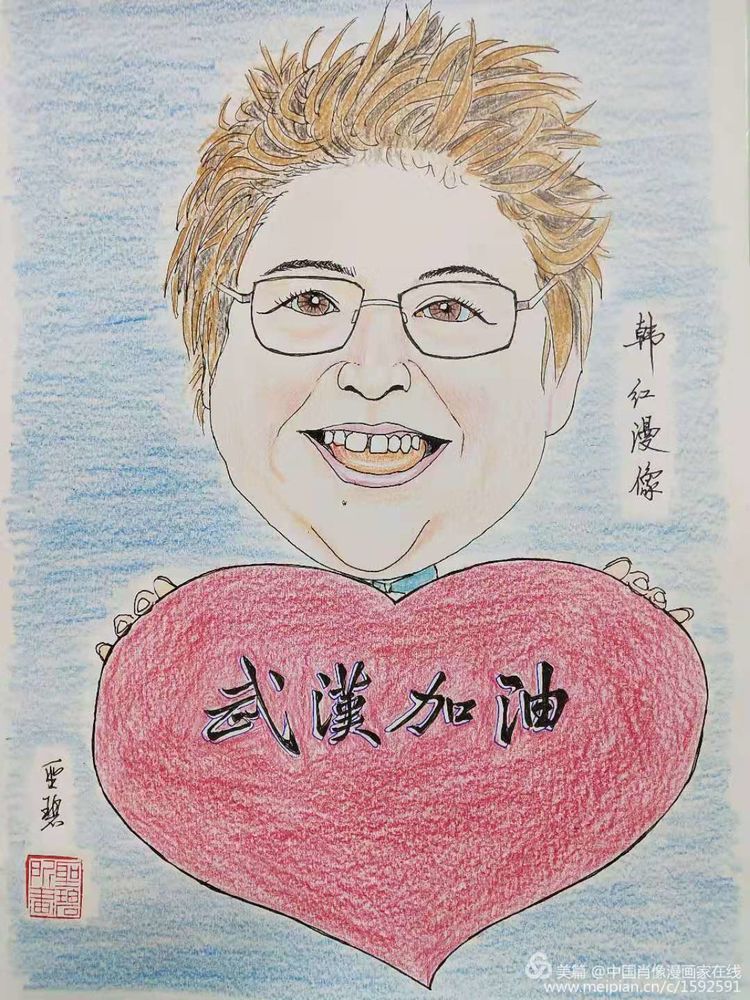 韩红漫像
武漢加油
圣碧
聖碧
所畫
美篇 @中国肖像漫画家在线
www.meipian.cn/c/1592591